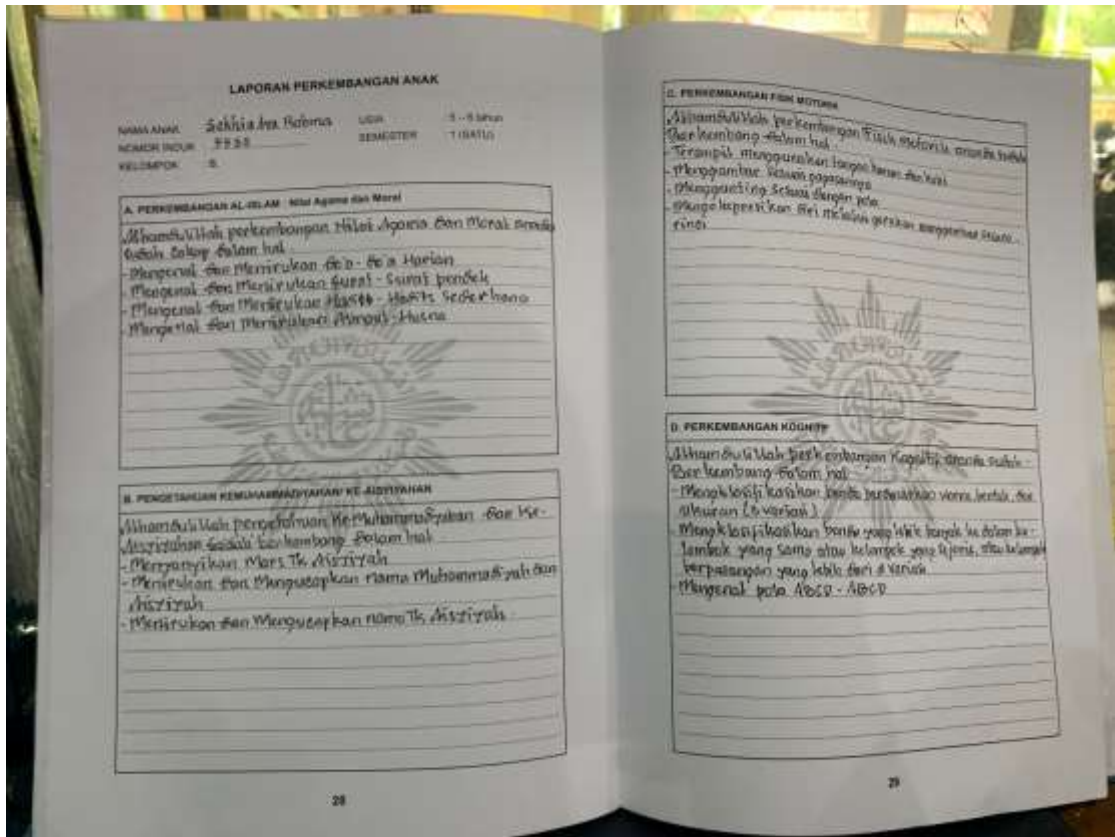 LAPORAN PERKEMBANGAN ANAK
NAMA ANAK
USIA : 5 - 6 tahun
NOMOR INDUK
SEMESTER : 1 (SATU)
KELOMPOK : B
A. PERKEMBANGAN AL-ISLAM : Nilai Agama dan Moral
Alhamdulillah perkembangan Nilai Agama dan Moral ananda
sudah cakap dalam hal
- Mengenal dan Menirukan do'a - do'a Harian
- Mengenal dan Menirukan surat - surat pendek
- Mengenal dan Menirukan Hadits - Hadits sederhana
- Mengenal dan Menirukan Asmaul - Husna
B. PENGETAHUAN KEMUHAMMADIYAHAN/ KE-AISYIYAHAN
Alhamdulillah pengetahuan KeMuhammadiyahan dan Ke-
Aisyiyahan sudah berkembang dalam hal
- Menyanyikan Mars Tk Aisyiyah
- Menirukan dan Mengucapkan nama Muhammadiyah dan
Aisyiyah
- Menirukan dan Mengucapkan nama Tk Aisyiyah
28
C. PERKEMBANGAN FISIK MOTORIK
Alhamdulillah perkembangan Fisik Motorik ananda sudah
Berkembang dalam hal
- Terampil menggunakan tangan kanan dan kiri
- Menggambar sesuai gagasannya
- Menggunting sesuai dengan pola
- Mengekspresikan diri melalui gerakan menggambar secara
rinci
D. PERKEMBANGAN KOGNITIF
Alhamdulillah perkembangan Kognitif ananda sudah
Berkembang dalam hal
- Mengklasifikasikan benda berdasarkan warna, bentuk, dan
ukuran (3 variasi)
- Mengklasifikasikan benda yang lebih banyak ke dalam ke-
lompok yang sama atau kelompok yang sejenis, atau kelompok
berpasangan yang lebih dari 2 variasi
- Mengenal pola ABCD - ABCD
29